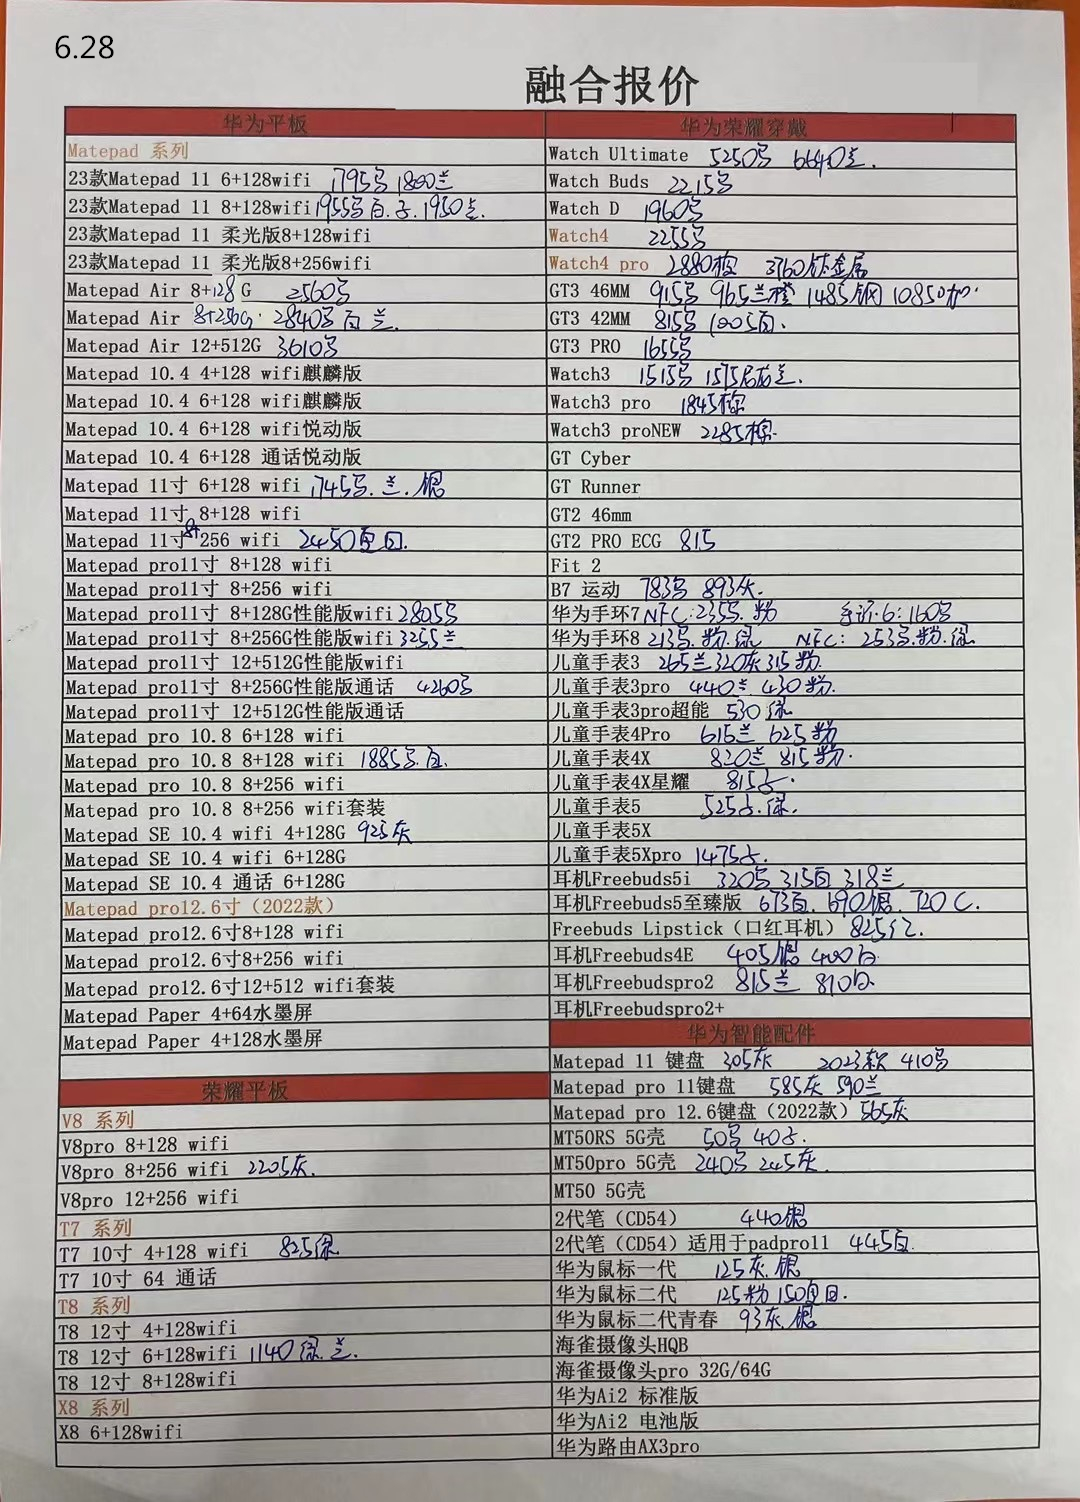 6.28
融合报价
华为平板
Matepad 系列
23款Matepad 11 6+128wifi 1795号 1800兰
23款Matepad 11 8+128wifi 1955号白.子.1950兰.
23款Matepad 11 柔光版8+128wifi
23款Matepad 11 柔光版8+256wifi
Matepad Air 8+128G 2560号
Matepad Air 8+256G 2840号白兰.
Matepad Air 12+512G 3610号
Matepad 10.4 4+128 wifi麒麟版
Matepad 10.4 6+128 wifi麒麟版
Matepad 10.4 6+128 wifi悦动版
Matepad 10.4 6+128 通话悦动版
Matepad 11寸 6+128 wifi 1745号.兰.银
Matepad 11寸 8+128 wifi
Matepad 11寸 8+256 wifi 2450
Matepad pro11寸 8+128 wifi
Matepad pro11寸 8+256 wifi
Matepad pro11寸 8+128G性能版wifi 2805号
Matepad pro11寸 8+256G性能版wifi 3255兰
Matepad pro11寸 12+512G性能版wifi
Matepad pro11寸 8+256G性能版通话 4260号
Matepad pro11寸 12+512G性能版通话
Matepad pro 10.8 6+128 wifi
Matepad pro 10.8 8+128 wifi 1885号.白.
Matepad pro 10.8 8+256 wifi
Matepad pro 10.8 8+256 wifi套装
Matepad SE 10.4 wifi 4+128G 925灰
Matepad SE 10.4 wifi 6+128G
Matepad SE 10.4 通话 6+128G
Matepad pro12.6寸（2022款）
Matepad pro12.6寸8+128 wifi
Matepad pro12.6寸8+256 wifi
Matepad pro12.6寸12+512 wifi套装
Matepad Paper 4+64水墨屏
Matepad Paper 4+128水墨屏
荣耀平板
V8 系列
V8pro 8+128 wifi
V8pro 8+256 wifi 2205灰.
V8pro 12+256 wifi
T7 系列
T7 10寸 4+128 wifi 825绿
T7 10寸 64 通话
T8 系列
T8 12寸 4+128wifi
T8 12寸 6+128wifi 1140绿.兰.
T8 12寸 8+128wifi
X8 系列
X8 6+128wifi
华为荣耀穿戴
Watch Ultimate 5250号 6640兰.
Watch Buds 2215号
Watch D 1960号
Watch4 2255号
Watch4 pro 2880棕 3760钛金属
GT3 46MM 915号 965兰橙 1485钢 1085
GT3 42MM 815号 1005白.
GT3 PRO 1655号
Watch3 1515号 1575
Watch3 pro 1845棕
Watch3 proNEW 2285棕.
GT Cyber
GT Runner
GT2 46mm
GT2 PRO ECG 815
Fit 2
B7 运动 783号 893灰.
华为手环7 NFC:235号.粉 手环6:160号
华为手环8 213号.粉.绿 NFC: 253号.粉.绿
儿童手表3 265兰320灰315粉
儿童手表3pro 440兰 430粉.
儿童手表3pro超能 530绿
儿童手表4Pro 615兰 625粉
儿童手表4X 820兰 815粉.
儿童手表4X星耀 815
儿童手表5 525
儿童手表5X
儿童手表5Xpro 1475
耳机Freebuds5i 320号 315白 318兰
耳机Freebuds5至臻版 673白.690银.720 C.
Freebuds Lipstick（口红耳机）825红.
耳机Freebuds4E 405银 400白
耳机Freebudspro2 815兰 810白.
耳机Freebudspro2+
华为智能配件
Matepad 11 键盘 305灰 2023款 410号
Matepad pro 11键盘 585灰 590兰
Matepad pro 12.6键盘（2022款）565灰
MT50RS 5G壳 50号 40
MT50pro 5G壳 240号 245灰.
MT50 5G壳
2代笔（CD54） 440银
2代笔（CD54）适用于padpro11 445白.
华为鼠标一代 125灰.银
华为鼠标二代 125粉 150
华为鼠标二代青春 93灰.银
海雀摄像头HQB
海雀摄像头pro 32G/64G
华为Ai2 标准版
华为Ai2 电池版
华为路由AX3pro